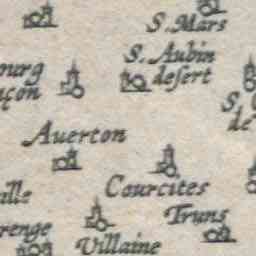 S. Mars
S. Aubin
desert
ourg
çon
S.
de
Auerton
Courcites
ille
Truns
renge
Villaine